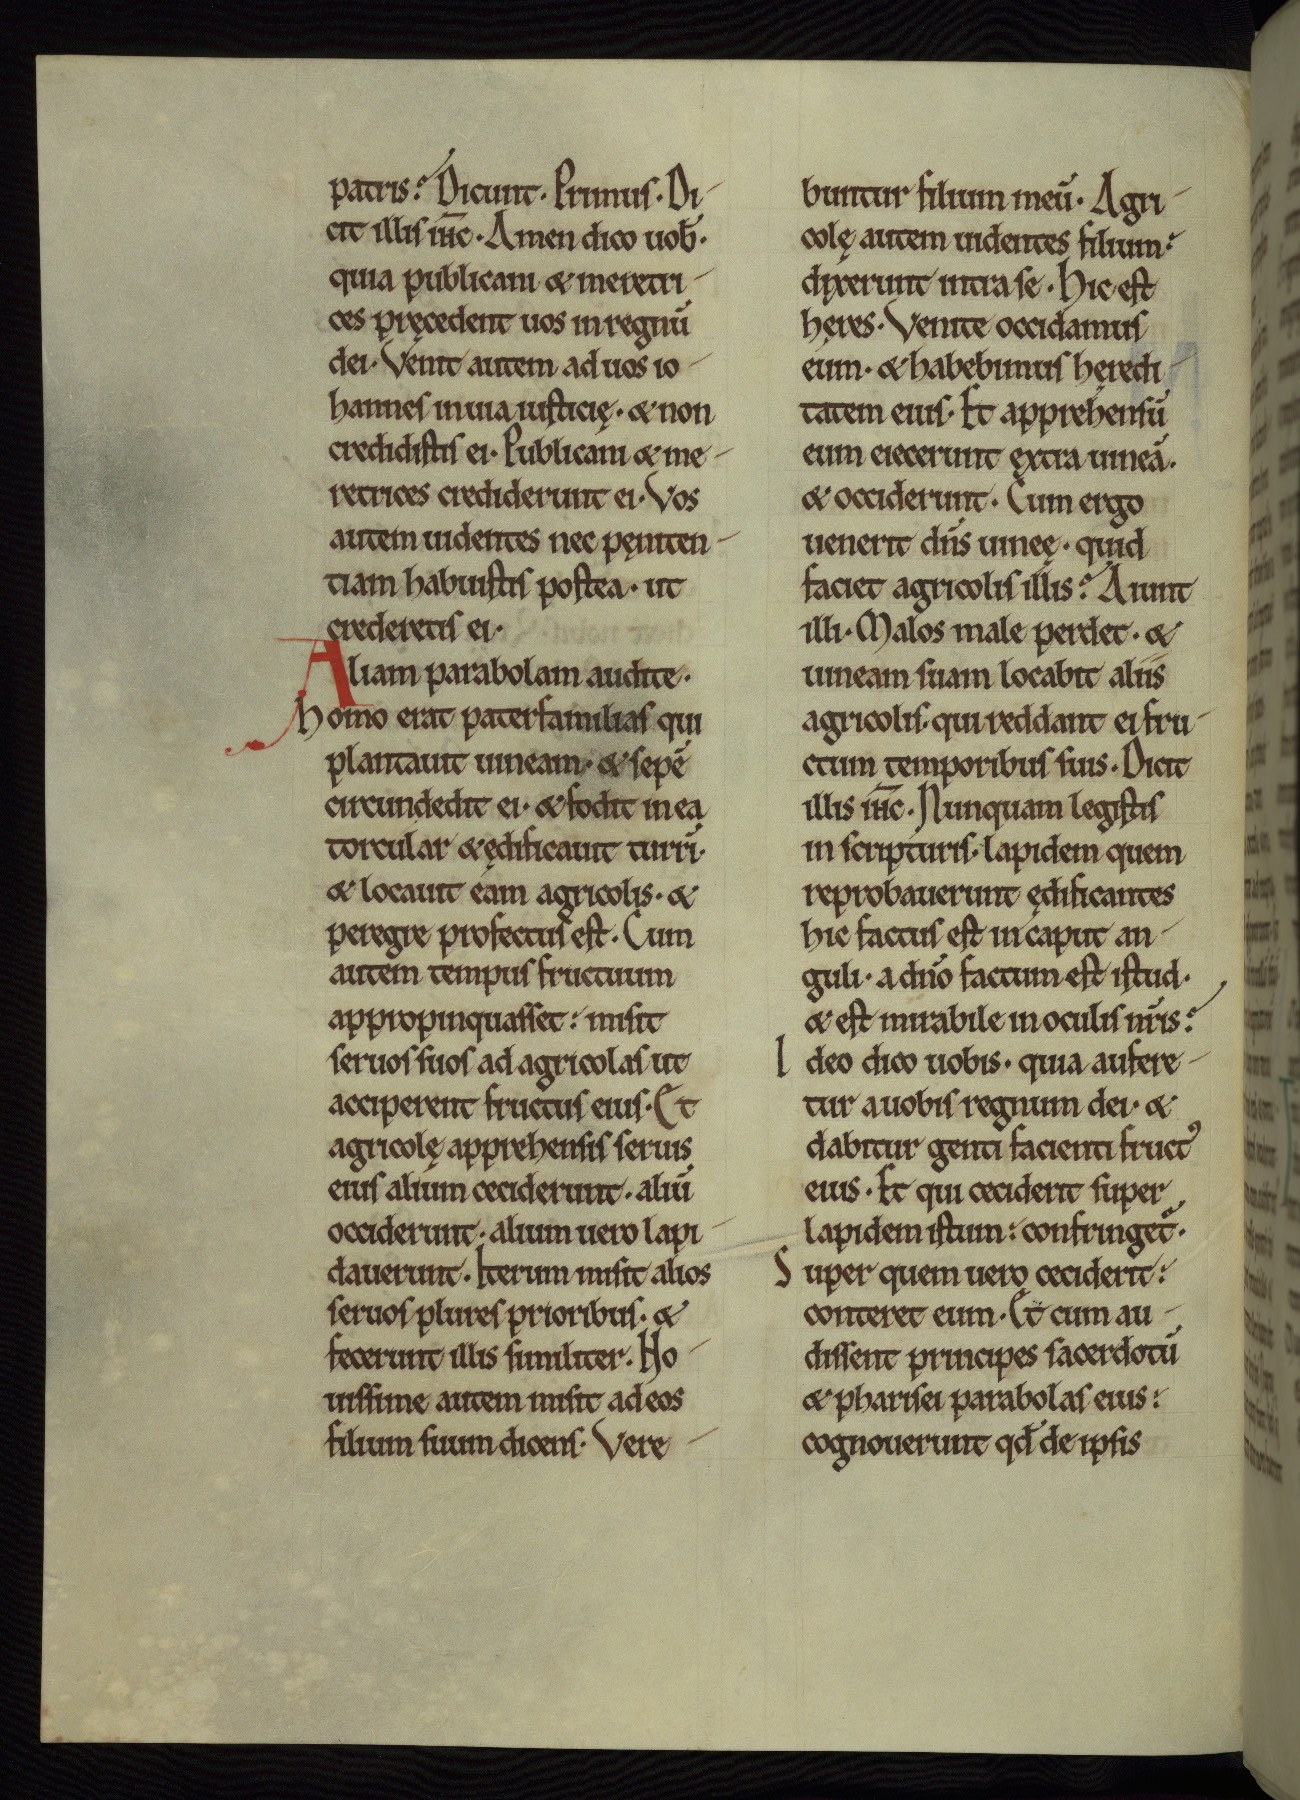 patris? Dicunt. Primus. Di-
cit illis ihc. Amen dico uob.
quia publicani & meretri-
ces pręcedent uos in regnū
dei. Venit autem ad uos io-
hannes in uia iusticię. & non
credidistis ei. Publicani & me-
retrices crediderunt ei. Vos
autem uidentes nec pęniten-
tiam habuistis postea. ut
crederetis ei.
Aliam parabolam audite.
homo erat paterfamilias qui
plantauit uineam. & sepē
circundedit ei. & fodit in ea
torcular & ędificauit turrī.
& locauit eam agricolis. &
peregre profectus est. Cum
autem tempus fructuum
appropinquasset: misit
seruos suos ad agricolas ut
acciperent fructus eius. Et
agricolę apprehensis seruis
eius alium ceciderunt. aliū
occiderunt. alium uero lapi-
dauerunt. Iterum misit alios
seruos plures prioribus. &
fecerunt illis similiter. No-
uissime autem misit ad eos
filium suum dicens. Vere-
buntur filium meū. Agri-
colę autem uidentes filium:
dixerunt intra se. Hic est
hęres. Venite occidamus
eum. & habebimus hęredi-
tatem eius. Et apprehensū
eum eiecerunt ęxtra uineā.
& occiderunt. Cum ergo
uenerit dn̄s uineę. quid
faciet agricolis illis? Aiunt
illi. Malos male perdet. &
uineam suam locabit aliis
agricolis. qui reddant ei fru-
ctum temporibus suis. Dicit
illis ihc. Nunquam legistis
in scripturis. lapidem quem
reprobauerunt ędificantes
hic factus est in caput an-
guli. a dn̄o factum est istud.
& est mirabile in oculis nr̄is?
Ideo dico uobis. quia aufere-
tur a uobis regnum dei. &
dabitur genti facienti fruct᾿
eius. Et qui ceciderit super
lapidem istum: confringet̄.
Super quem uero ceciderit:
conteret eum. Et cum au-
dissent principes sacerdotū
& pharisei parabolas eius:
cognouerunt qd̄ de ipsis